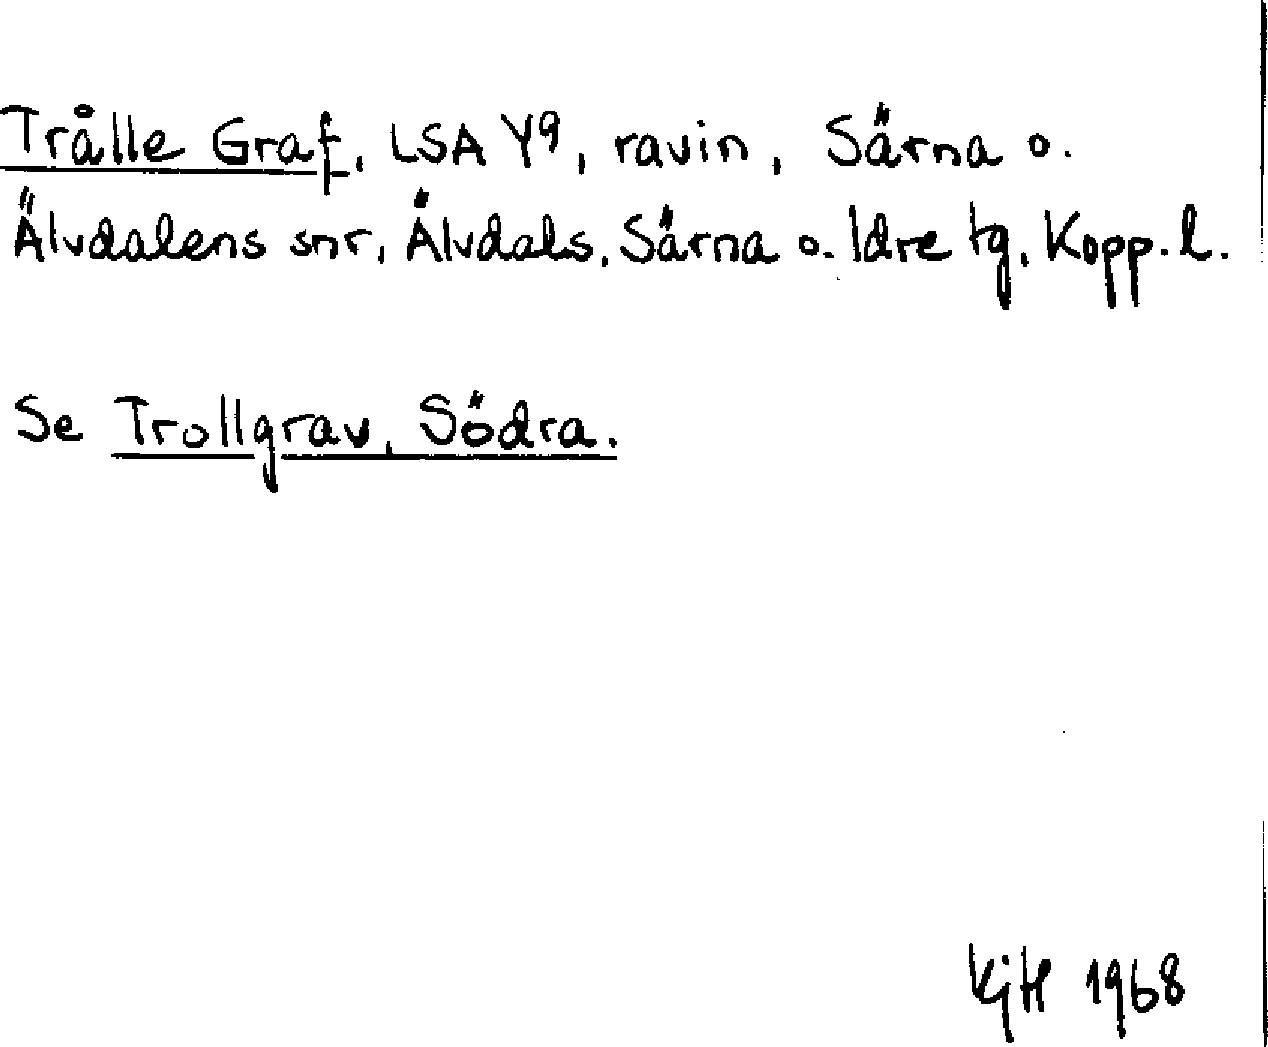 Trålle Graf, LSA Y9, ravin, Särna o.
Älvdalens snr, Älvdals, Särna o. Idre tg, Kopp. l.
Se Trollgrav, Södra.
KjH 1968